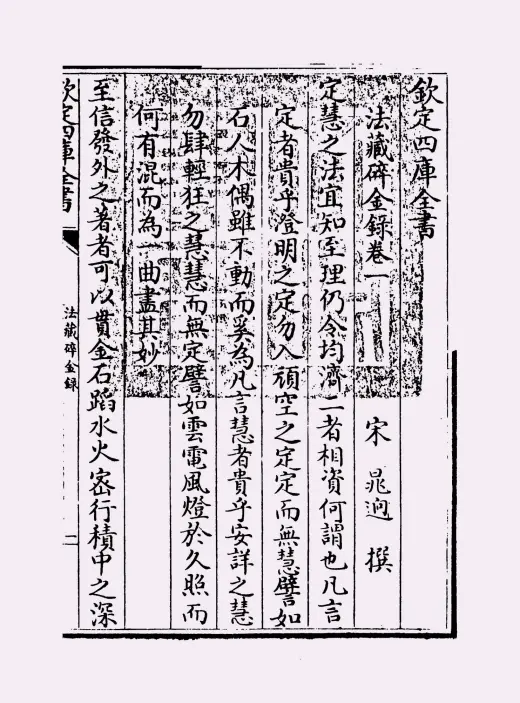 欽定四庫全書
法藏碎金錄卷一
宋 晁迥 撰
定慧之法宜知至理仍令均濟二者相資何謂也凡言
定者貴乎澄明之定勿入頑空之定定而無慧譬如
石人木偶雖不動而奚為凡言慧者貴乎安詳之慧
勿肆輕狂之慧慧而無定譬如雲電風燈於久照而
何有混而為一曲盡其妙
至信發外之著者可以貫金石蹈水火宻行積中之深
欽定四庫全書
法藏碎金錄
二